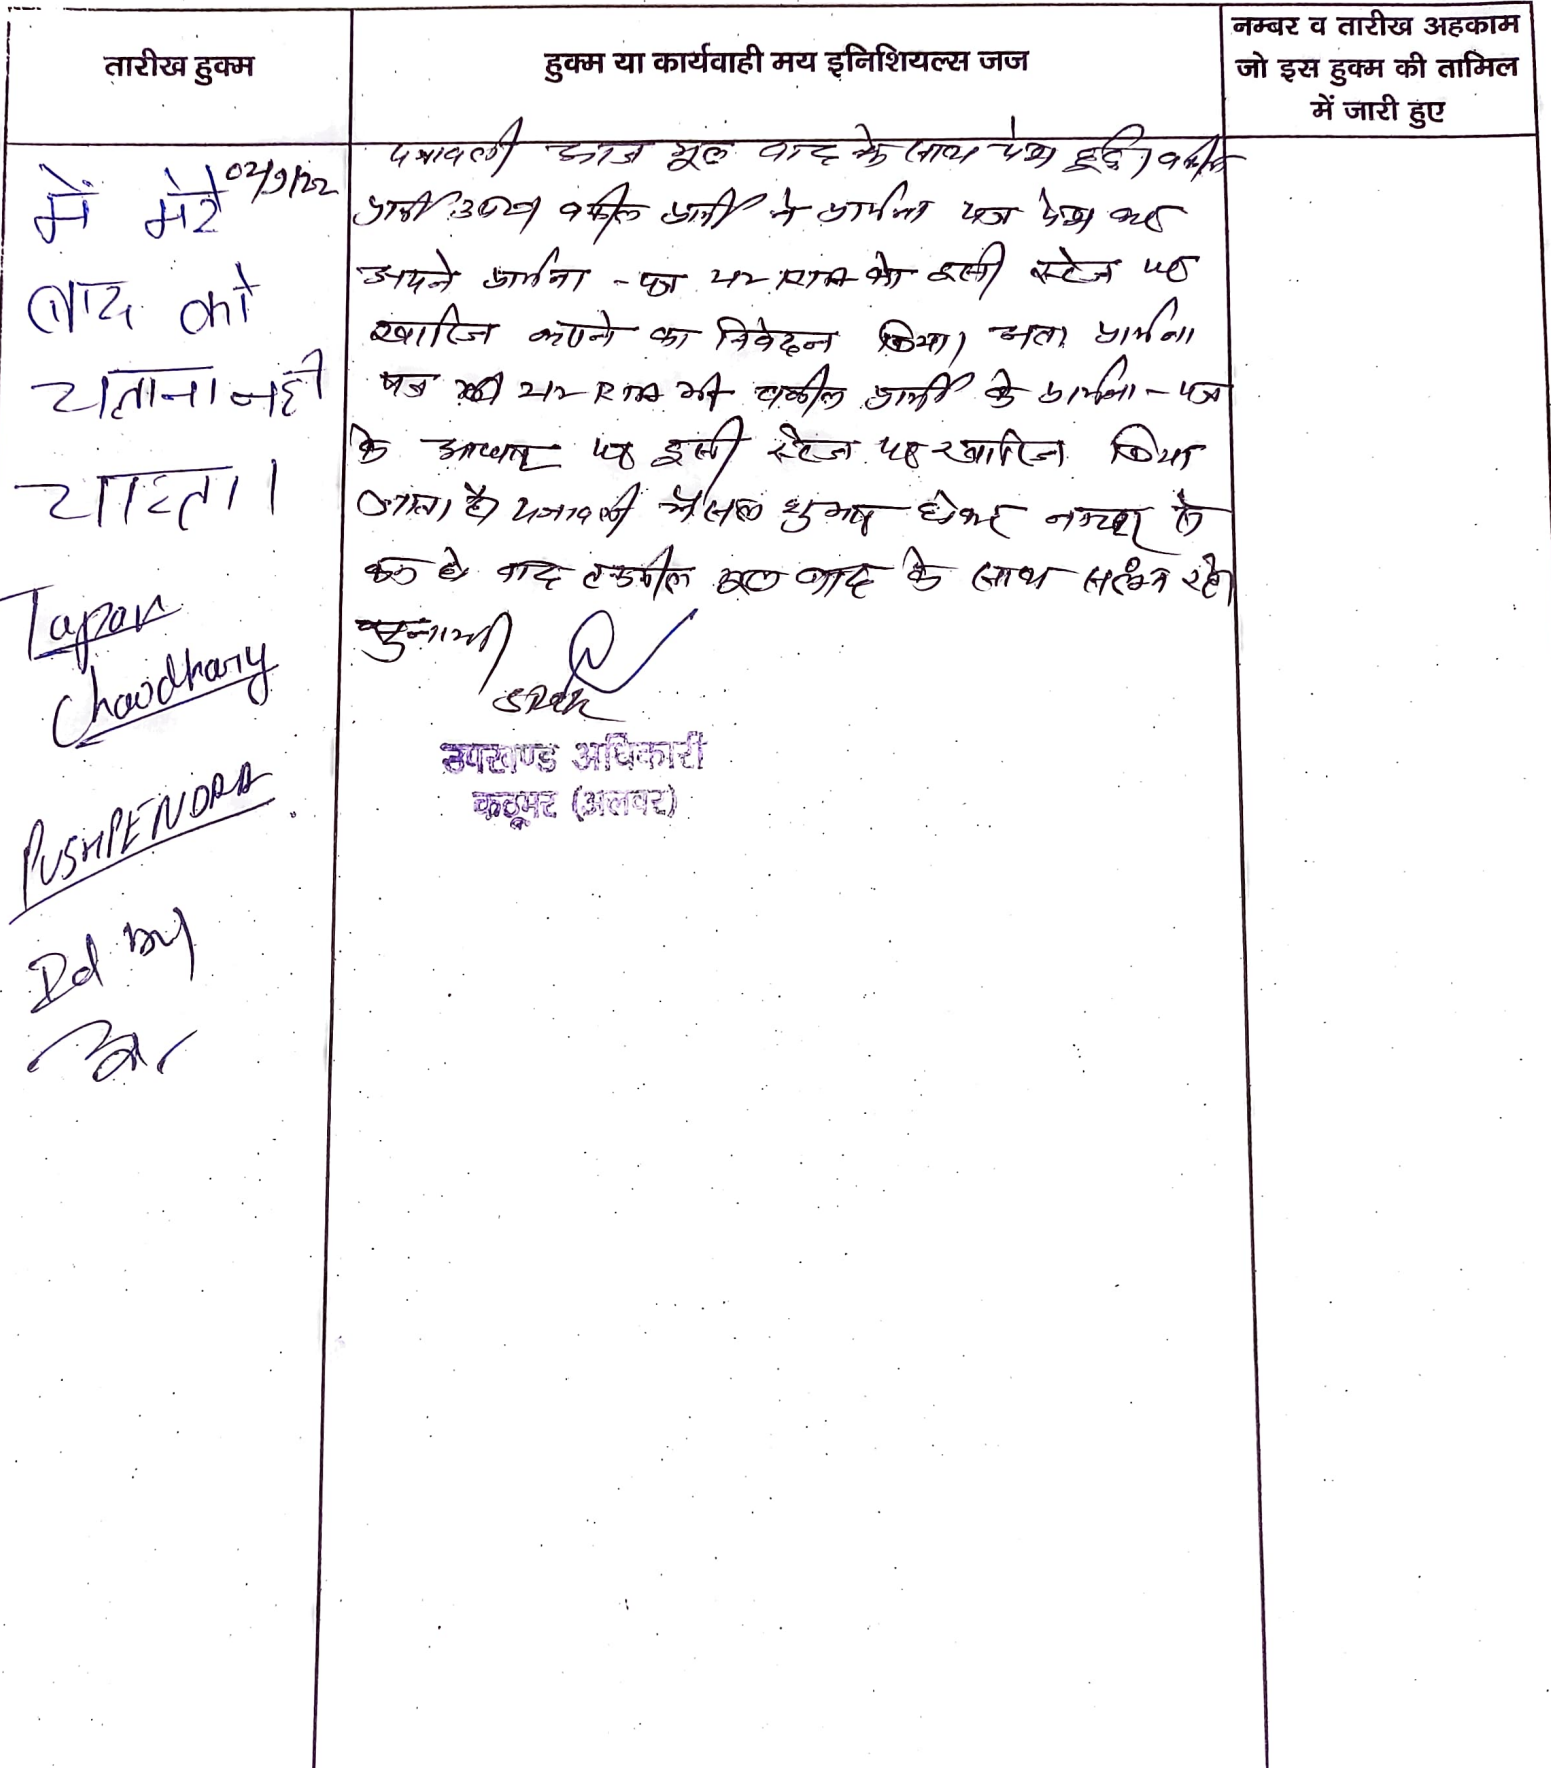 तारीख हुक्म
हुक्म या कार्यवाही मय इनिशियल्स जज
नम्बर व तारीख अहकाम
जो इस हुक्म की तामिल
में जारी हुए
02/9/22
में मेरे
वाद को
चलाना नही
चाहता।
Tapan
Choudhary
PUSHPENDRA
Id by
पत्रावली आज मूल वाद के साथ पेश हुई। वकील
प्रार्थी उप0। वकील प्रार्थी ने प्रार्थना पत्र पेश कर
अपने प्रार्थना - पत्र को इसी स्टेज पर
खारिज करने का निवेदन किया। अतः प्रार्थना
पत्र वकील प्रार्थी के प्रार्थना - पत्र
के आधार पर इसी स्टेज पर खारिज किया
जाता है। पत्रावली फैसल शुमार होकर नम्बर से
कम हो बाद तकमील मूल वाद के साथ संलग्न रहे।
उपखण्ड अधिकारी
कठूमर (अलवर)